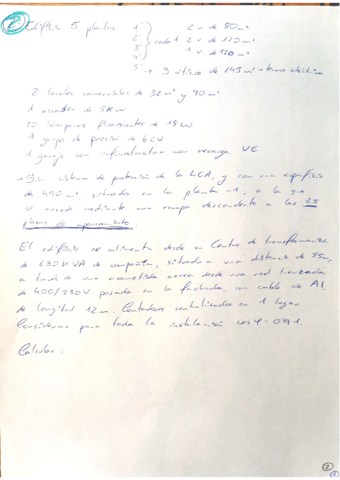 ② Edificio 5 plantas 1ª 2 v de 80 m²
2ª
3ª cada 1 2 v de 120 m²
4ª 1 v de 180 m²
5ª → 3 áticos de 145 m²
2 locales comerciales de 32 m² y 90 m²
1 ascensor de 5 kW
20 lámparas fluorescentes de 15 W
1 grupo de presión de 6 CV
1 garaje con infraestructura con recarga VE
→ Sin sistema de protección de la LGA, y con una superficie
de 490 m², situados en la planta -1, a la q se
accede mediante una rampa descendente a las 25
plazas de aparcamiento.
El edificio se alimenta desde un Centro de transformación
de 630 KVA de compañía, situado a una distancia de 55 m,
a través de una acometida aérea desde una red trenzada
de 400/230V posada en la fachada, con cable de Al,
de longitud 12 m. Contadores centralizados en 1 lugar.
Considerar para toda la instalación cos φ = 0'91.
Calcular:
②